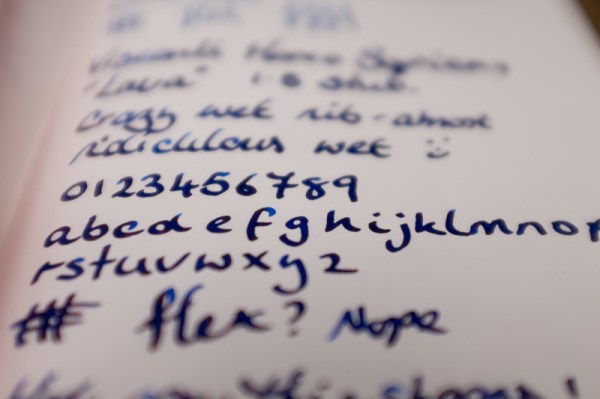 Visconti Homo Sapiens
"Lava" 1.5 stub.
crazy wet nib - almost
ridiculous wet :)
0123456789
abcdefghijklmno
rstuvwxyz
# flex? Nope